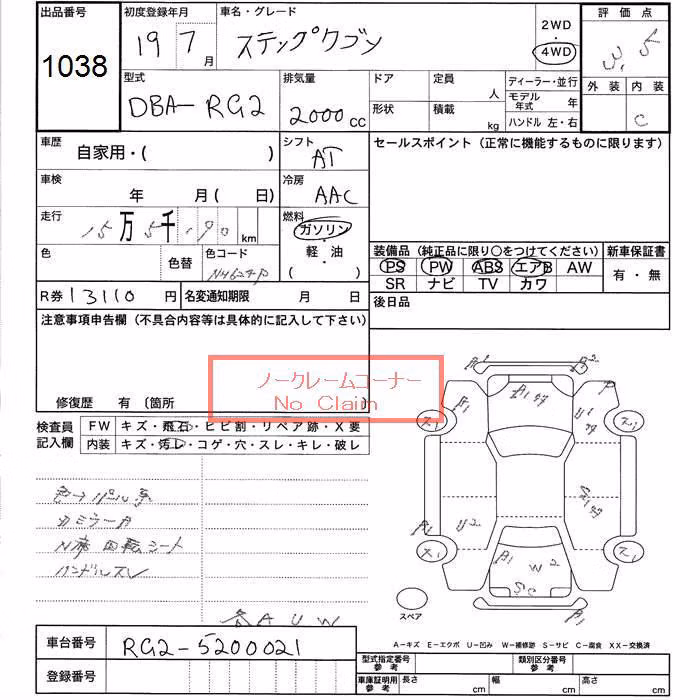 出品番号
1038
初度登録年月
19 7 月
車名・グレード
ステップワゴン
2WD
4WD
評価点
3.5
外装 内装
C
型式
DBA-RG2
排気量
2000 cc
ドア
形状
定員 人
積載 kg
ディーラー・並行
モデル年式 年
ハンドル 左・右
車歴
自家用・( )
シフト
AT
セールスポイント(正常に機能するものに限ります)
車検
年 月( 日)
冷房
AAC
走行
15万5千190 km
燃料
ガソリン
軽・油
( )
色
色替
色コード
NH624P
装備品(純正品に限り○をつけてください)
PS PW ABS エアB AW
SR ナビ TV カワ
新車保証書
有・無
R券 13110 円
名変通知期限 月 日
後日品
注意事項申告欄(不具合内容等は具体的に記入して下さい)
修復歴 有 〔箇所
ノークレームコーナー
No Claim
検査員記入欄
FW キズ・飛石・ヒビ割・リペア跡・X要
内装 キズ・汚レ・コゲ・穴・スレ・キレ・破レ
N席 回転シート
ハンドルスレ
各AUW
A1
A2
U2
W2
SC
スペア
A-キズ E-エクボ U-凹み W-補修跡 S-サビ C-腐食 XX-交換済
車台番号
RG2-5200021
登録番号
型式指定番号 参考
類別区分番号 参考
車庫証明用 参考
長さ cm
幅 cm
高さ cm